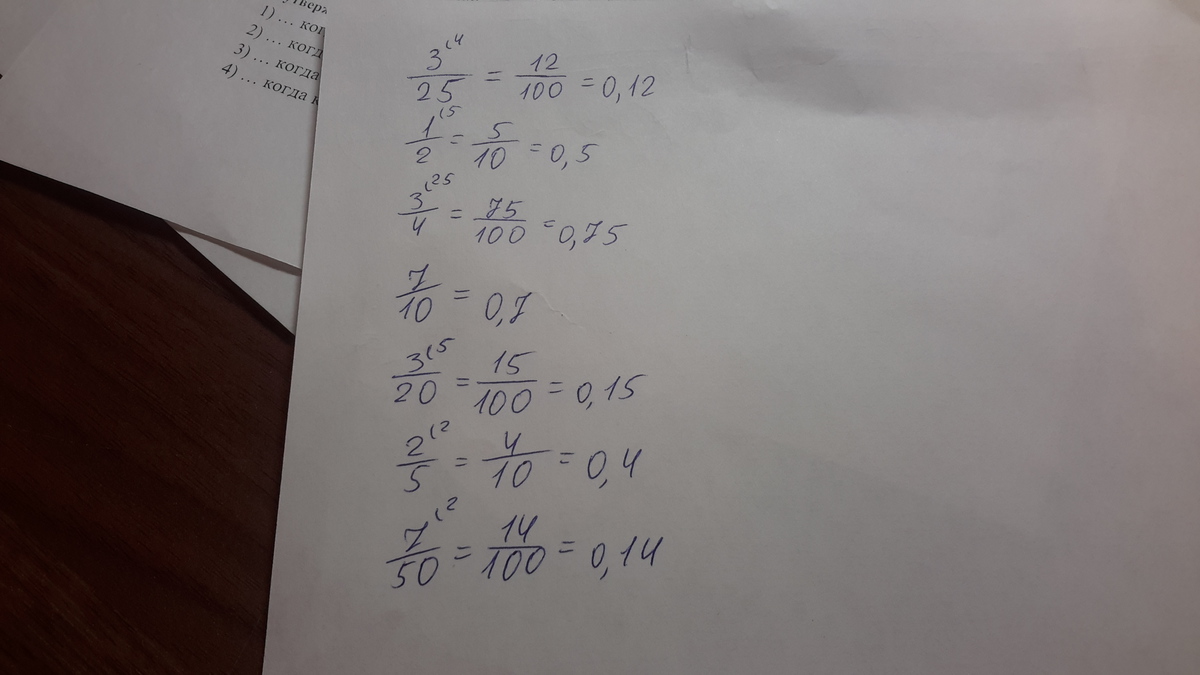 1) ... 
2) ... 
3) ... когда
4) ... когда
3⁽⁴/25 = 12/100 = 0,12
1⁽⁵/2 = 5/10 = 0,5
3⁽²⁵/4 = 75/100 = 0,75
7/10 = 0,7
3⁽⁵/20 = 15/100 = 0,15
2⁽²/5 = 4/10 = 0,4
7⁽²/50 = 14/100 = 0,14